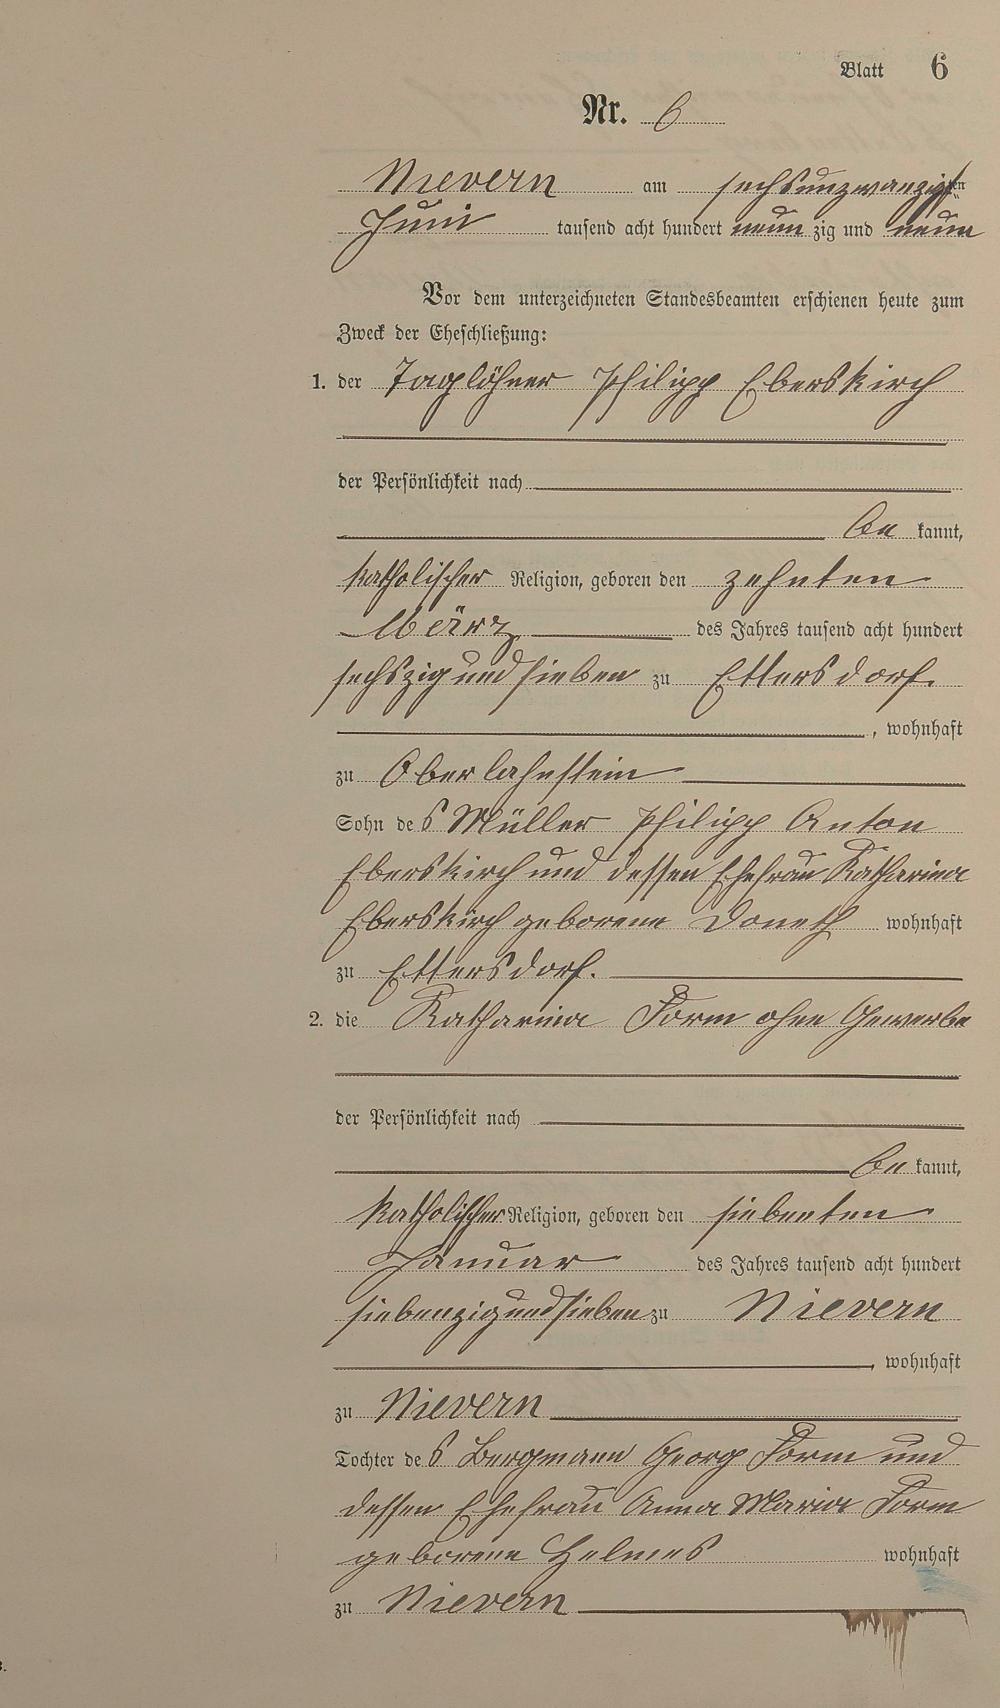 Blatt 6
Nr. 6
Nievern am sechsundzwanzigsten
Juni tausend acht hundert neun zig und neun
Vor dem unterzeichneten Standesbeamten erschienen heute zum
Zweck der Eheschließung:
1. der Taglöhner Philipp Eberskirch
der Persönlichkeit nach
be kannt,
katholischer Religion, geboren den zehnten
März des Jahres tausend acht hundert
sechszig und sieben zu Ettersdorf.
, wohnhaft
zu Oberlahnstein
Sohn des Müller Philipp Anton
Eberskirch und dessen Ehefrau Katharina
Eberskirch geborene Doneth wohnhaft
zu Ettersdorf.
2. die Katharina Form ohne Gewerbe
der Persönlichkeit nach
be kannt,
katholischer Religion, geboren den siebenten
Januar des Jahres tausend acht hundert
siebenzig und sieben zu Nievern
, wohnhaft
zu Nievern
Tochter des Bergmann Georg Form und
dessen Ehefrau Anna Maria Form
geborene Helmes wohnhaft
zu Nievern